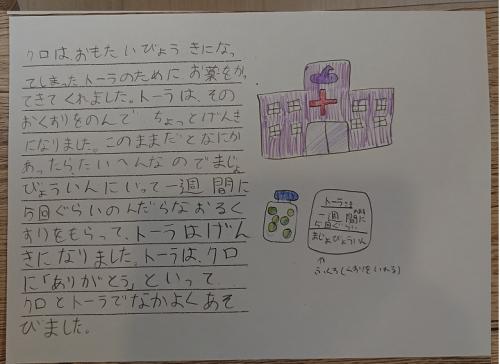 クロは、おもたいびょうきになっ
てしまったトーラのために お薬をかっ
てきてくれました。トーラは、その
おくすりをのんで ちょっとげんき
になりました。このままだとなにか
あったら、たいへんなのでまじょ
びょういんにいって一週間に
5回ぐらいのんだらなおるく
すりをもらって、トーラはげん
きになりました。トーラは、クロ
に「ありがとう」といって
クロとトーラでなかよくあそ
びました。
トーラさま
一週間に
5回ぐらい
まじょびょういん
ふくろ(くすりをいれる)